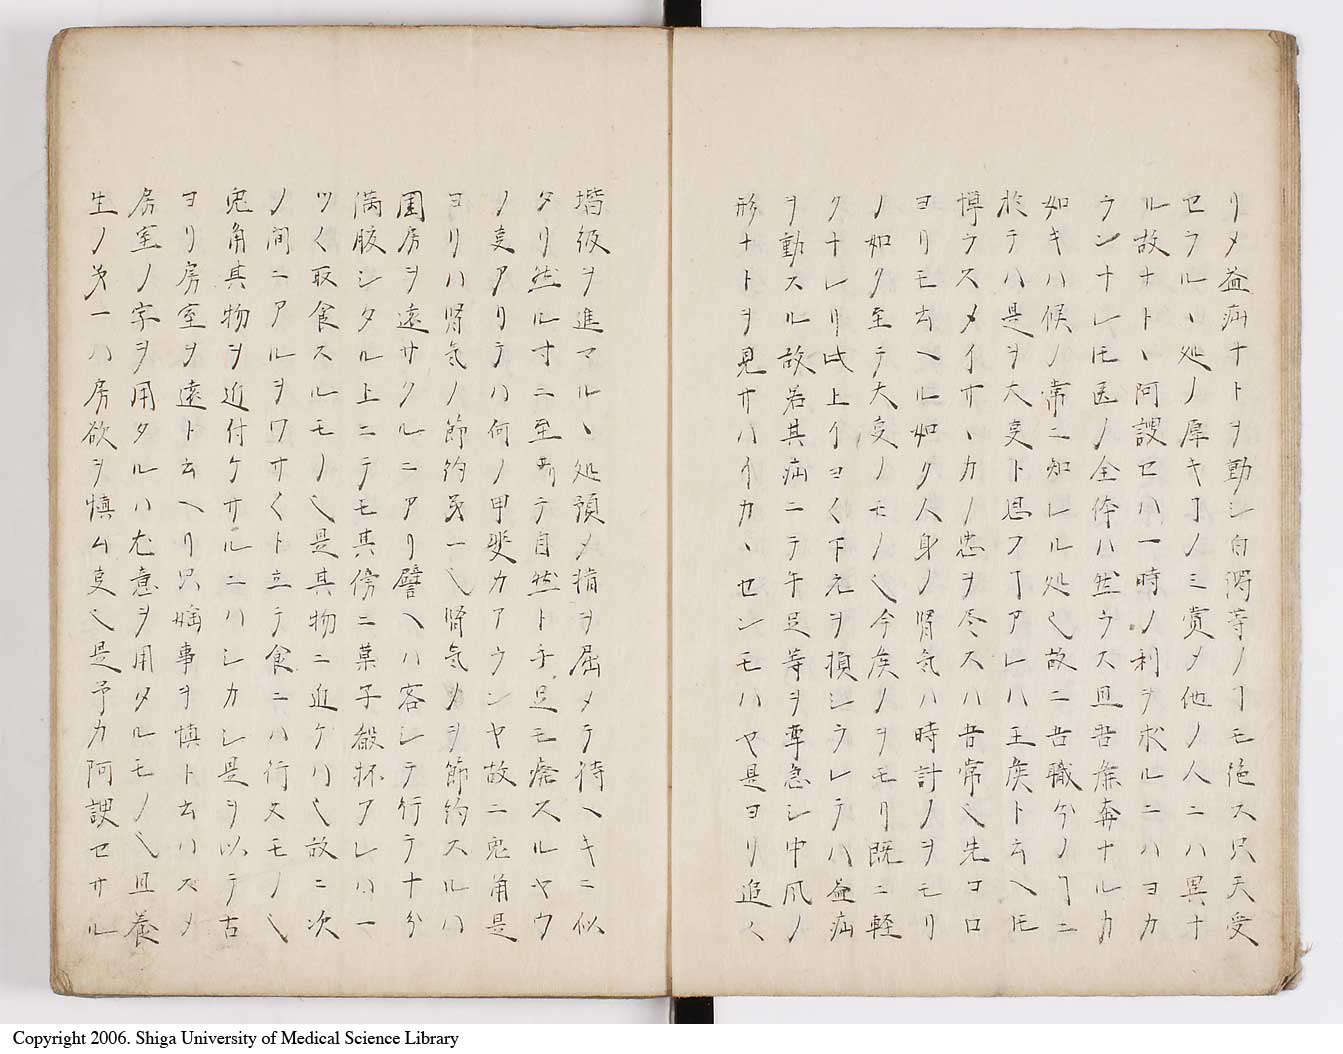 リメ益疝ナトヲ動シ白濁等ノヿモ絶ス只天受
セラルヽ処ノ厚キヿノミ賞メ他ノ人ニハ異ナ
ル故ナトヽ阿諛セハ一時ノ利ヲ求ルニハヨカ
ランナレ𪜈医ノ全体ハ然ラス且吾儕奔ナルカ
如キハ候ノ常ニ知レル処也故ニ吾職分ノヿニ
於テハ是ヲ大変ト思フヿアレハ王侯ト云ヘ𪜈
憚ラスメイサヽカノ忠ヲ尽スハ吾常也先ヨロ
ヨリモ云ヘル如ク人身ノ腎気ハ時計ノヲモリ
ノ如ク至テ大変ノモノ也今侯ノヲモリ既ニ軽
クナレリ此上イヨ〱下元ヲ損シラレテハ益疝
ヲ動スル故若其疝ニテ手足等ヲ攣急シ中風ノ
形ナトヲ見サハイカヽセンモハヤ是ヨリ追〱
堦級ヲ進マルヽ処預メ指ヲ屈メテ待ヘキニ似
タリ然ル寸ニ至テ自然ト手足モ痿スルヤウ
ノ変アリテハ何ノ甲斐カアランヤ故ニ兎角是
ヨリハ腎気ノ節約第一也腎気メヲ節約スルハ
閨房ヲ遠サクルニアリ譬ヘハ客シテ行テ十分
満腹シタル上ニテモ其傍ニ菓子殽杯アレハ一
ツ〱取食スルモノ也是其物ニ近ケハ也故ニ次
ノ間ニアルヲワサ〱ト立テ食ニハ行ヌモノ也
兎角其物ヲ近付ケサルニハシカシ是ヲ以テ古
ヨリ房室ヲ遠ト云ヘリ只婬事ヲ慎ト云ハスメ
房室ノ字ヲ用タルハ尤意ヲ用タルモノ也且養
生ノ第一ハ房欲ヲ慎ム変也是予カ阿諛セサル
Copyright 2006. Shiga University of Medical Science Library